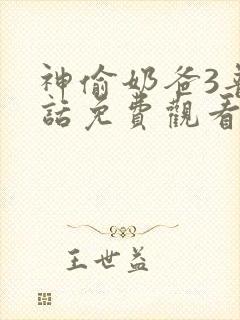 神偷奶爸3普
話免費觀看
王世益